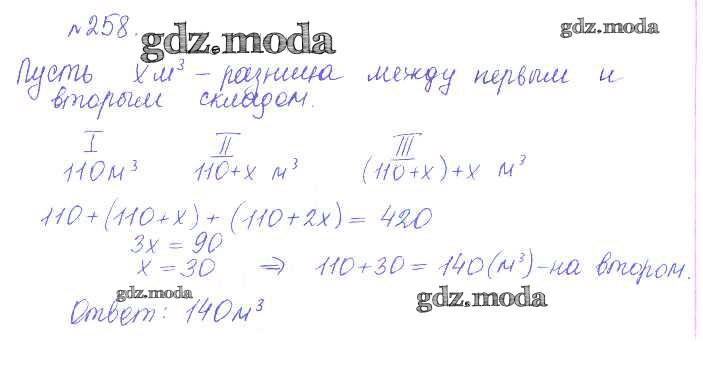 №258.
gdz.moda
gdz.moda
Пусть x м³ – разница между первым и
вторым складом.
I II III
110 м³ 110+x м³ (110+x)+x м³
110+(110+x)+(110+2x)=420
3x=90
x=30 ⇒ 110+30=140(м³)-на втором.
gdz.moda
gdz.moda
Ответ: 140м³